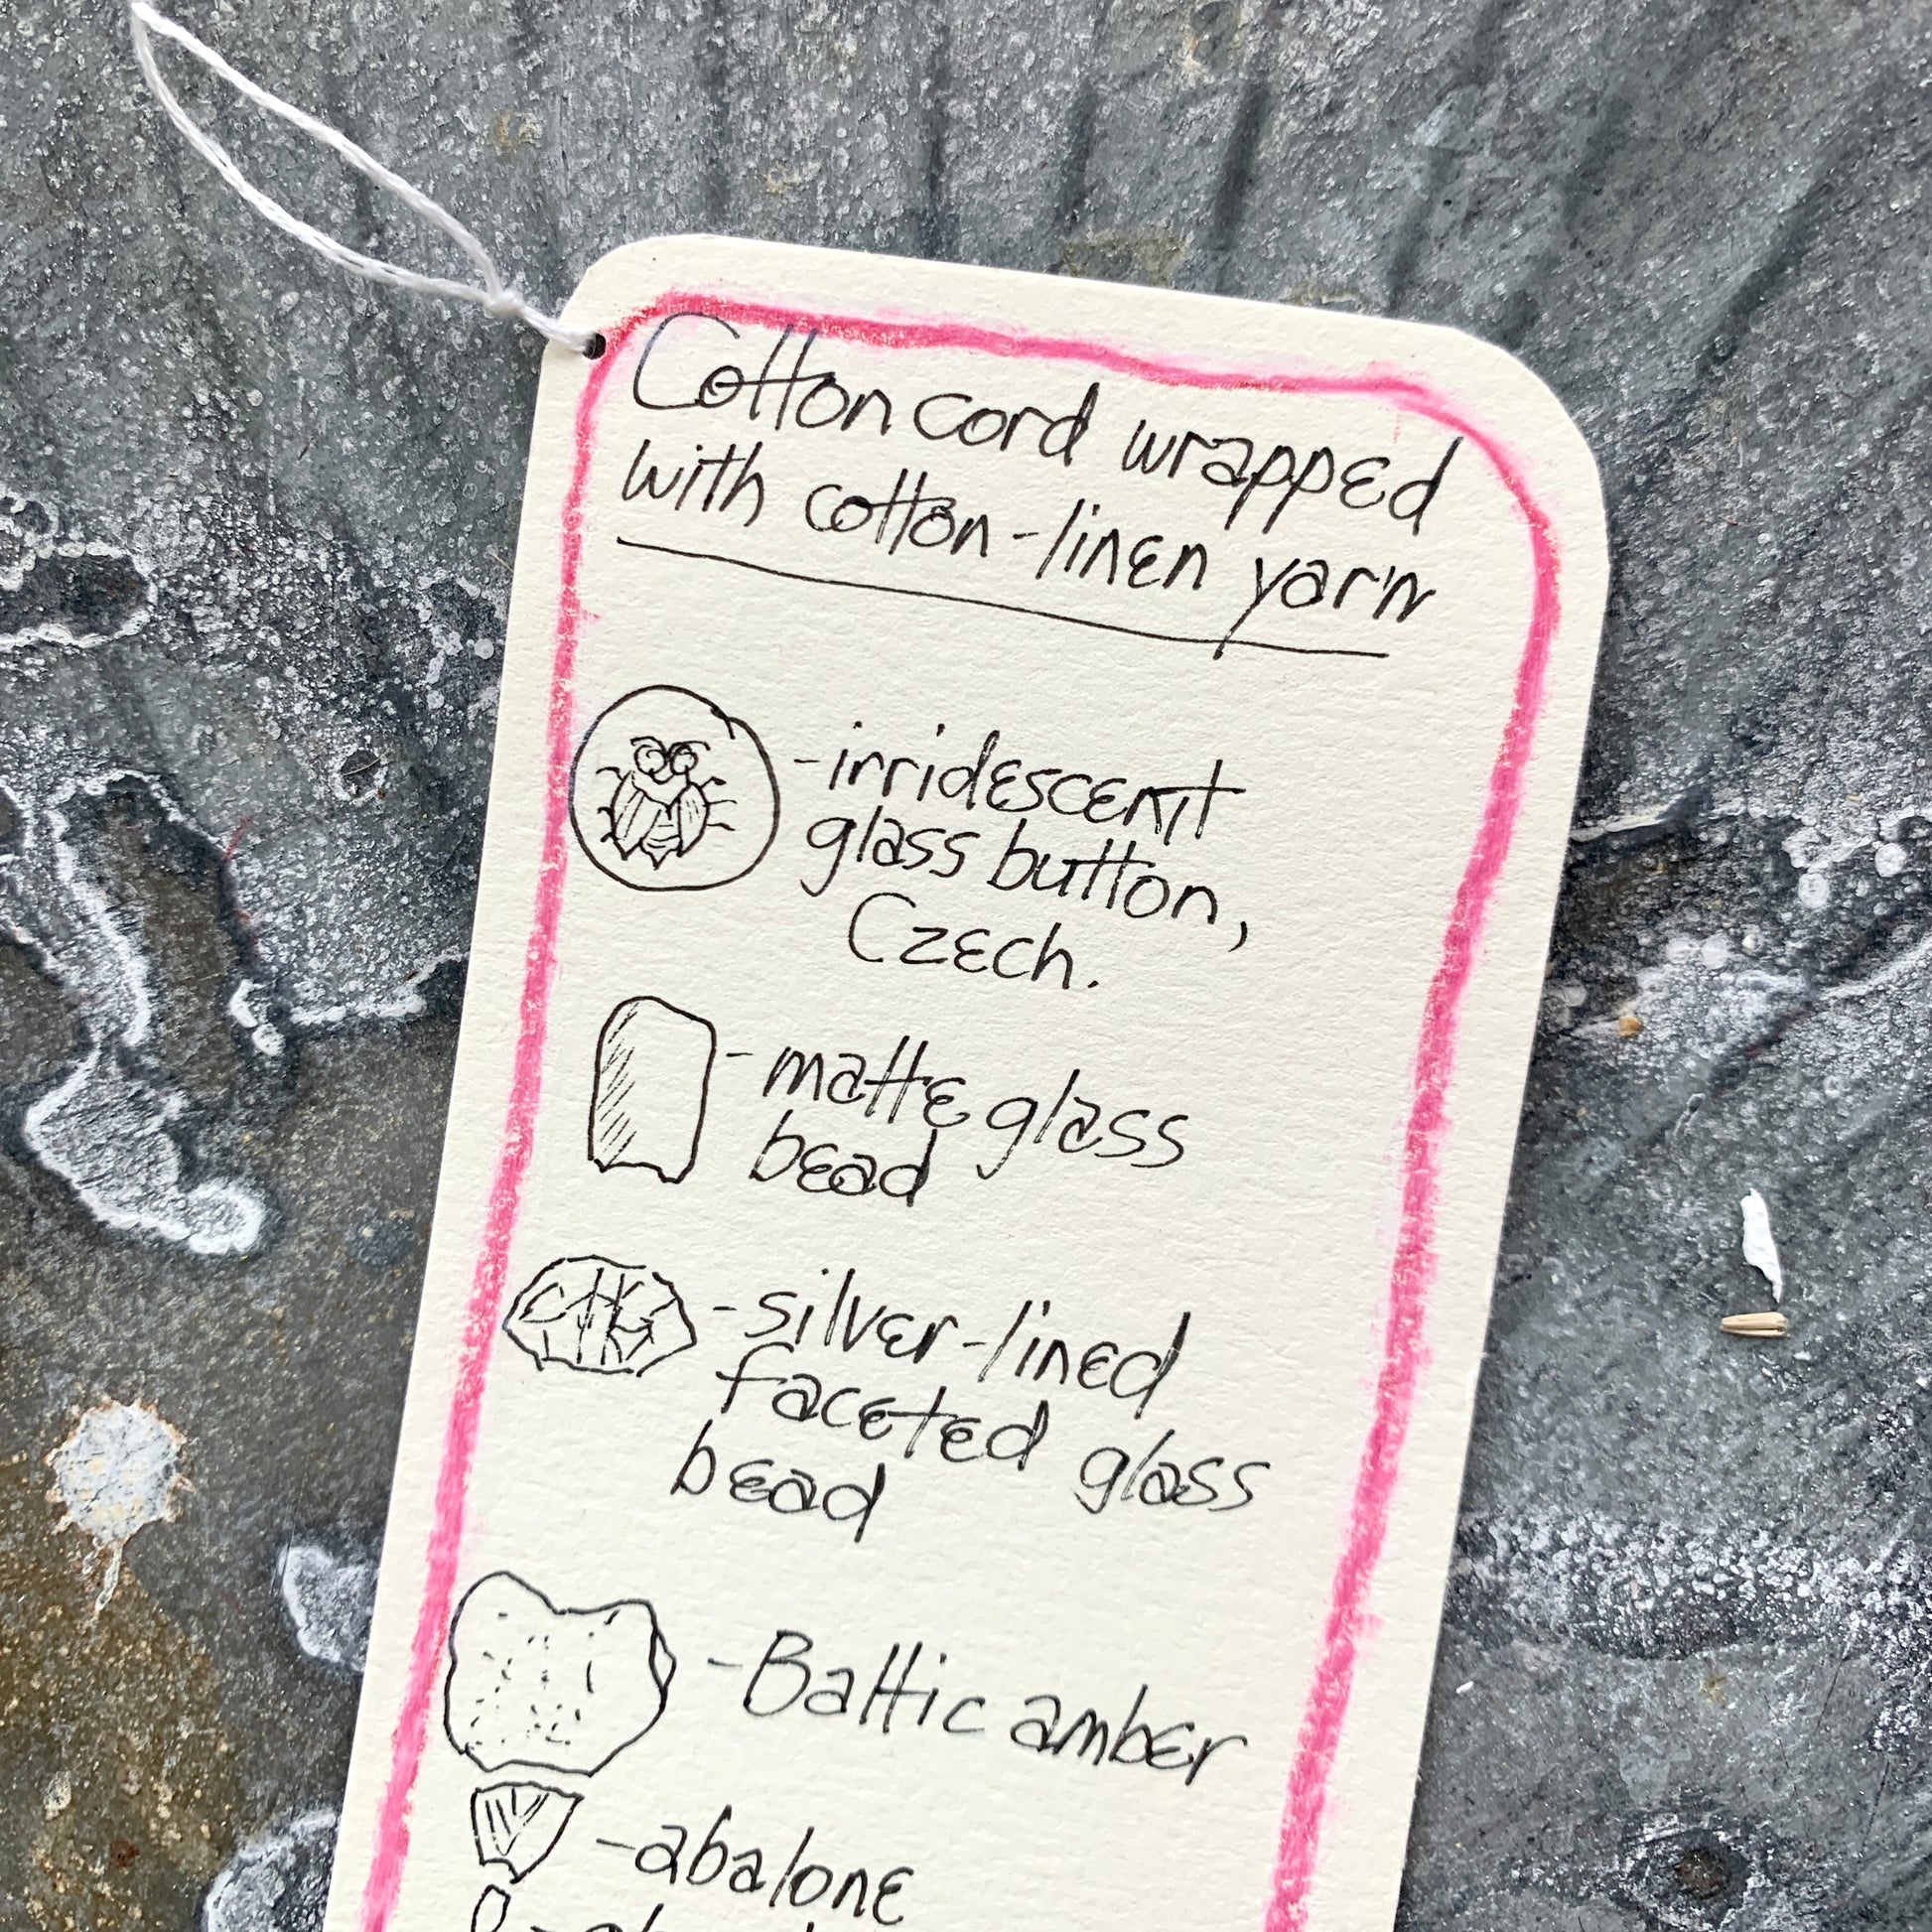 Cotton cord wrapped
with cotton-linen yarn
-irridescent
glass button,
Czech.
-matte glass
bead
-silver-lined
faceted glass
bead
-Baltic amber
-abalone